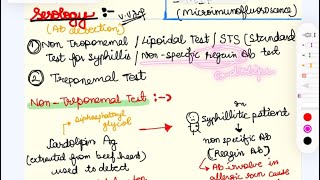 Serology :- V.V.Imp
(Microimmunofluoroscence)
(Ab detection)
① Non Troponemal / Lipoidal Test / STS (Standard
Test for Syphillis / Non-specific Reagin Ab test
② Treponemal Test
Non-Treponemal Test :→
diphosphatydyl
glycol
Cardiolipin Ag
(extracted from beef heart)
used to detect
In
Syphillitic patient
↓
non specific Ab
(Reagin Ab)
→ Ab involve in
allergic rxn cause